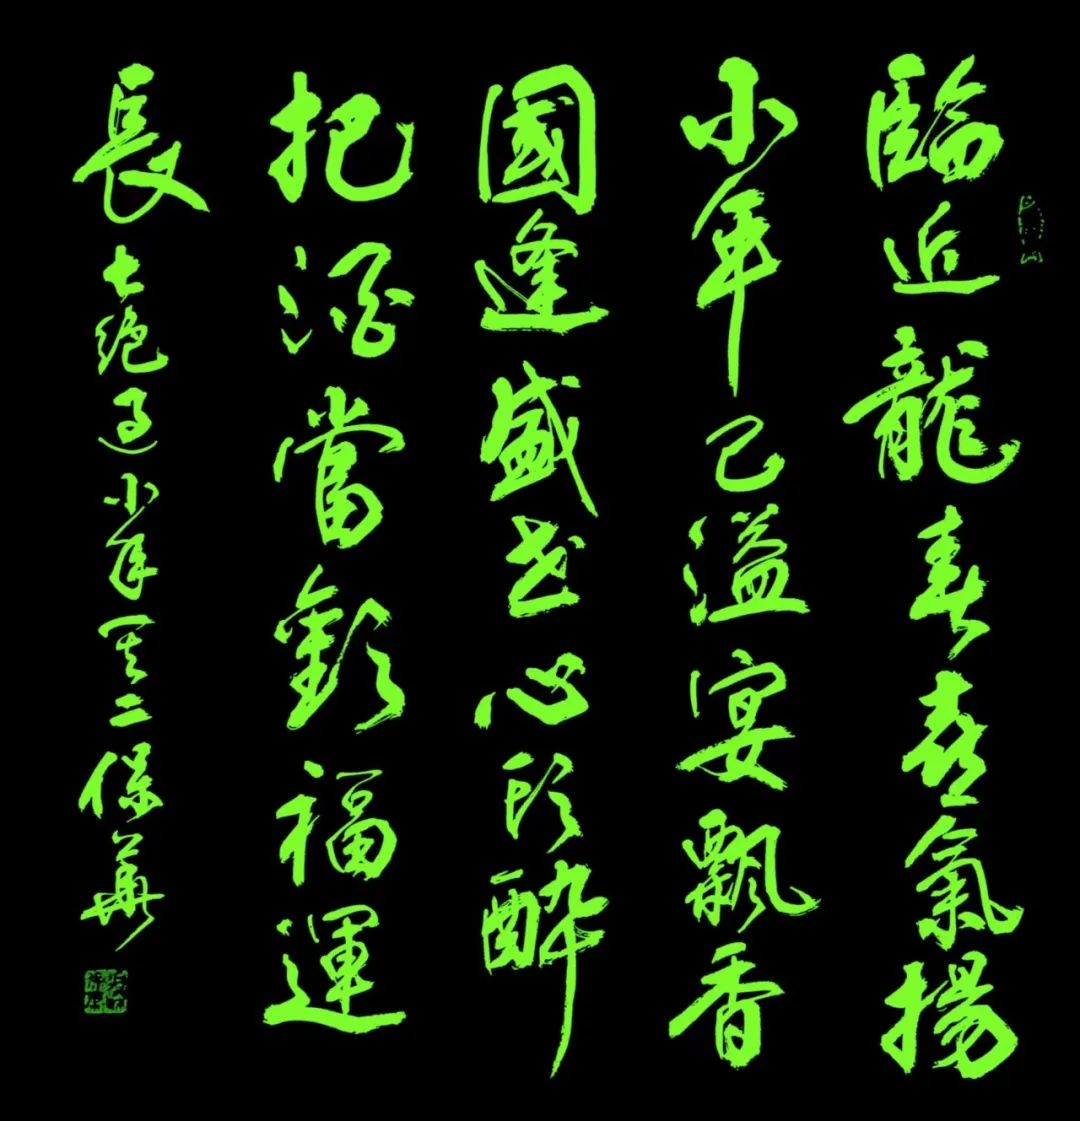 臨近龍春喜氣揚
小年已溢宴飄香
國逢盛世心頭醉
把酒當歡福運
長
七絕過小年 二保華